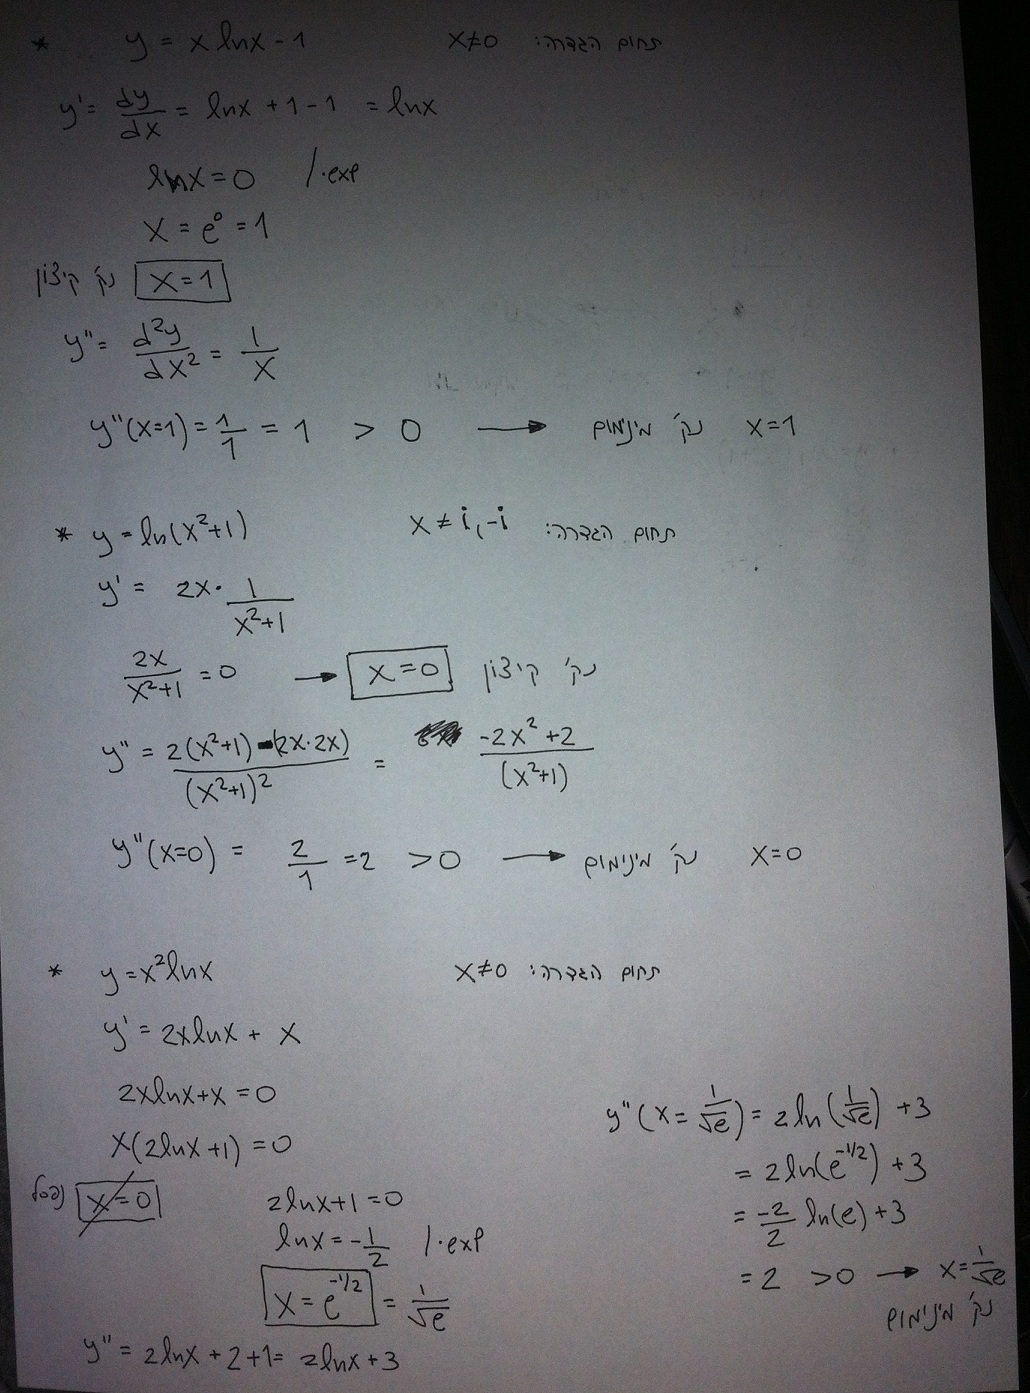 * y = x lnx - 1 תחום הגדרה: x≠0
y' = dy/dx = lnx + 1 - 1 = lnx
lnx = 0 /·exp
x = e⁰ = 1
x = 1 נק' קיצון
y'' = d²y/dx² = 1/x
y''(x=1) = 1/1 = 1 > 0 → נק' מינימום x=1
* y = ln(x²+1) תחום הגדרה: x ≠ i,-i
y' = 2x · 1/(x²+1)
2x/(x²+1) = 0 → x=0 נק' קיצון
y'' = (2(x²+1) - (2x·2x))/(x²+1)² = (-2x²+2)/(x²+1)
y''(x=0) = 2/1 = 2 > 0 → נק' מינימום x=0
* y = x²lnx תחום הגדרה: x≠0
y' = 2xlnx + x
2xlnx + x = 0
x(2lnx+1) = 0
x=0 נפסל
2lnx+1 = 0
lnx = -1/2 /·exp
x = e^(-1/2) = 1/√e
y'' = 2lnx + 2 + 1 = 2lnx + 3
y''(x = 1/√e) = 2ln(1/√e) + 3
= 2ln(e^(-1/2)) + 3
= -2/2 ln(e) + 3
= 2 > 0 → x = 1/√e
נק' מינימום